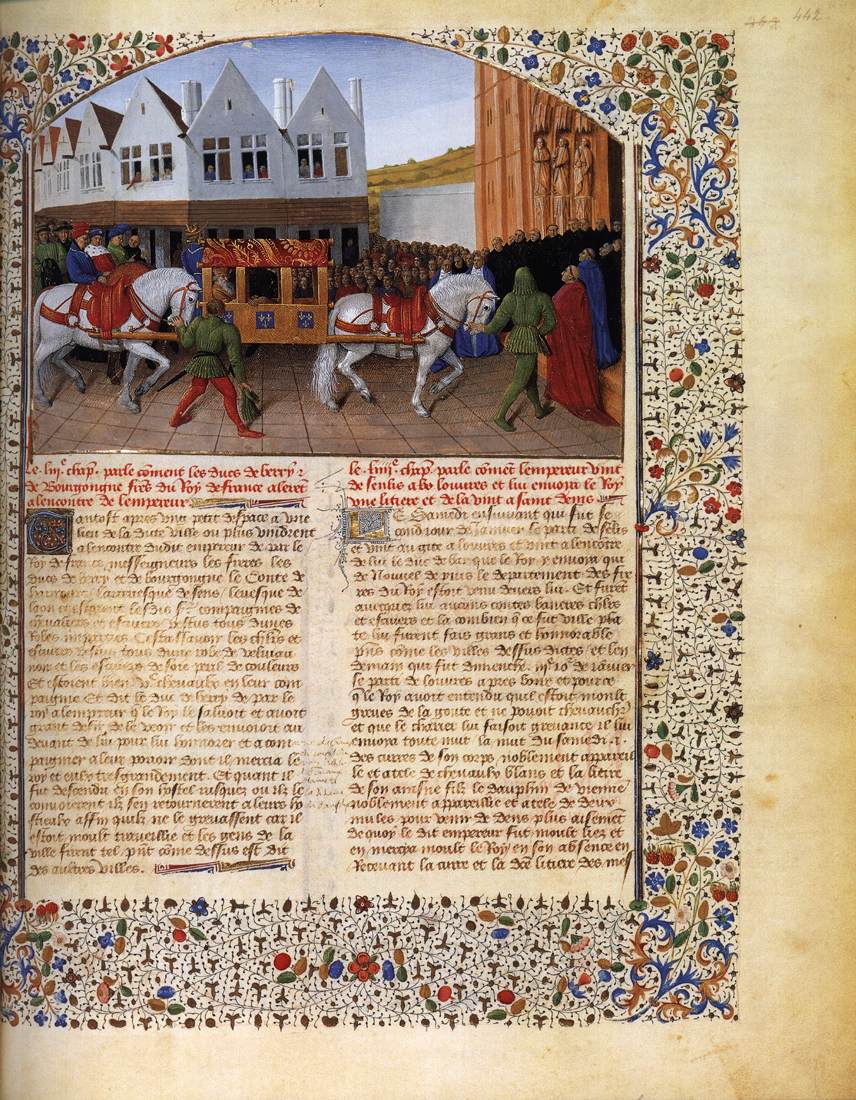 442
Le liiiᵉ chap̄. parle cōment les ducs de berry ⁊
de Bourgongne freres du Roy de france alerēt
a lencontre de lempereur.
tantost apres une petit despace a une
lieu de la dicte ville ou plus vindrent
a lencontre dudit empereur de par le
Roy de france messeigneurs les freres les
ducs de berry et de bourgongne le Conte de
larcevesque de sens levesque de
et compaignies de
chevaliers et escuiers vestus tous dunes
Robes Cestassavoir les chl̄rs et
tous dune robe de veluiau
noir et les escuiers de soie de couleurs
Et estoient bien vᶜ chevaulx en leur com
paignie Et dit le duc de berry de par le
roy a lempereur q̄ le Roy le saluoit et avoit
grant desir de le veoir et les envoioit au
devant de lui pour lui honnorer et acom
paignier a leur povoir dont il mercia le
roy et eulx tresgrandement. Et quant il
fut descendu en son hostel jusques ou ilz le
convoierent ilz sen retournerent a leurs ho
stieulx affin quilz ne le grevassent car il
estoit moult traveillie et les gens de la
ville firent tel p̄nt cōme dessus est dit
des aultres villes.
le liiiiᵉ chap̄ parle cōmēt lempereur vint
de senlis a lovures et lui envoia le Roy
une litiere et de la vint a saint denis
LE Samedi ensuivant qui fut se
cond jour de Janvier se parti de sēlis
et vint au giste a louvres et vint a lencōtre
de lui le duc de bar que le Roy y envoia qui
de nouvel depuis le departement des fre
res du Roy estoit venu devers lui. Et furēt
avecques lui aucuns contes baneres chl̄rs
et escuiers et la combien q̄ ce fut ville pla
te lui furent fais grans et honnorable
p̄ns cōme les villes dessus dictes et len
demain qui fut dimenche. iijᵉ jōr de iāvier
se parti de louvres apres boire et pource
q̄ le Roy avoit entendu quil estoit moult
greves de la goute et ne povoit chevauchr̄
et que le chariot lui faisoit grevance il lui
envoia toute nuit la nuit du samedi .i.
des curres de son corps noblement appareil
le et atele de chevaulx blans et la litiere
de son ainsne filz le dauphin de vienne
noblement appareillie et atele de deux
mules pour venir dedens plus aisemēt
de quoy le dit empereur fut moult liez et
en mercia moult le Roy en son absence en
Recevant la curre et la dc̄e litiere des mes